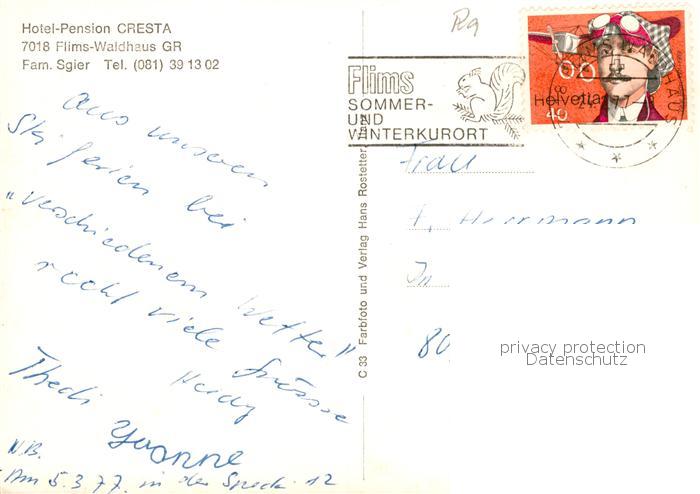 Hotel-Pension CRESTA
7018 Flims-Waldhaus GR
Fam. Sgier Tel. (081) 39 13 02
Rg
Flims
SOMMER-
UND
WINTERKURORT
Helvetia
40
aus unseren
Skiferien bei
"verschiedenem Wetter"
recht viele Grüsse
Thedi
Yvonne
N.B.
Am 5.3.77 in der Speck 12
C 33 Farbfoto und Verlag Hans Rostetter
Frau
Herrmann
80
privacy protection
Datenschutz